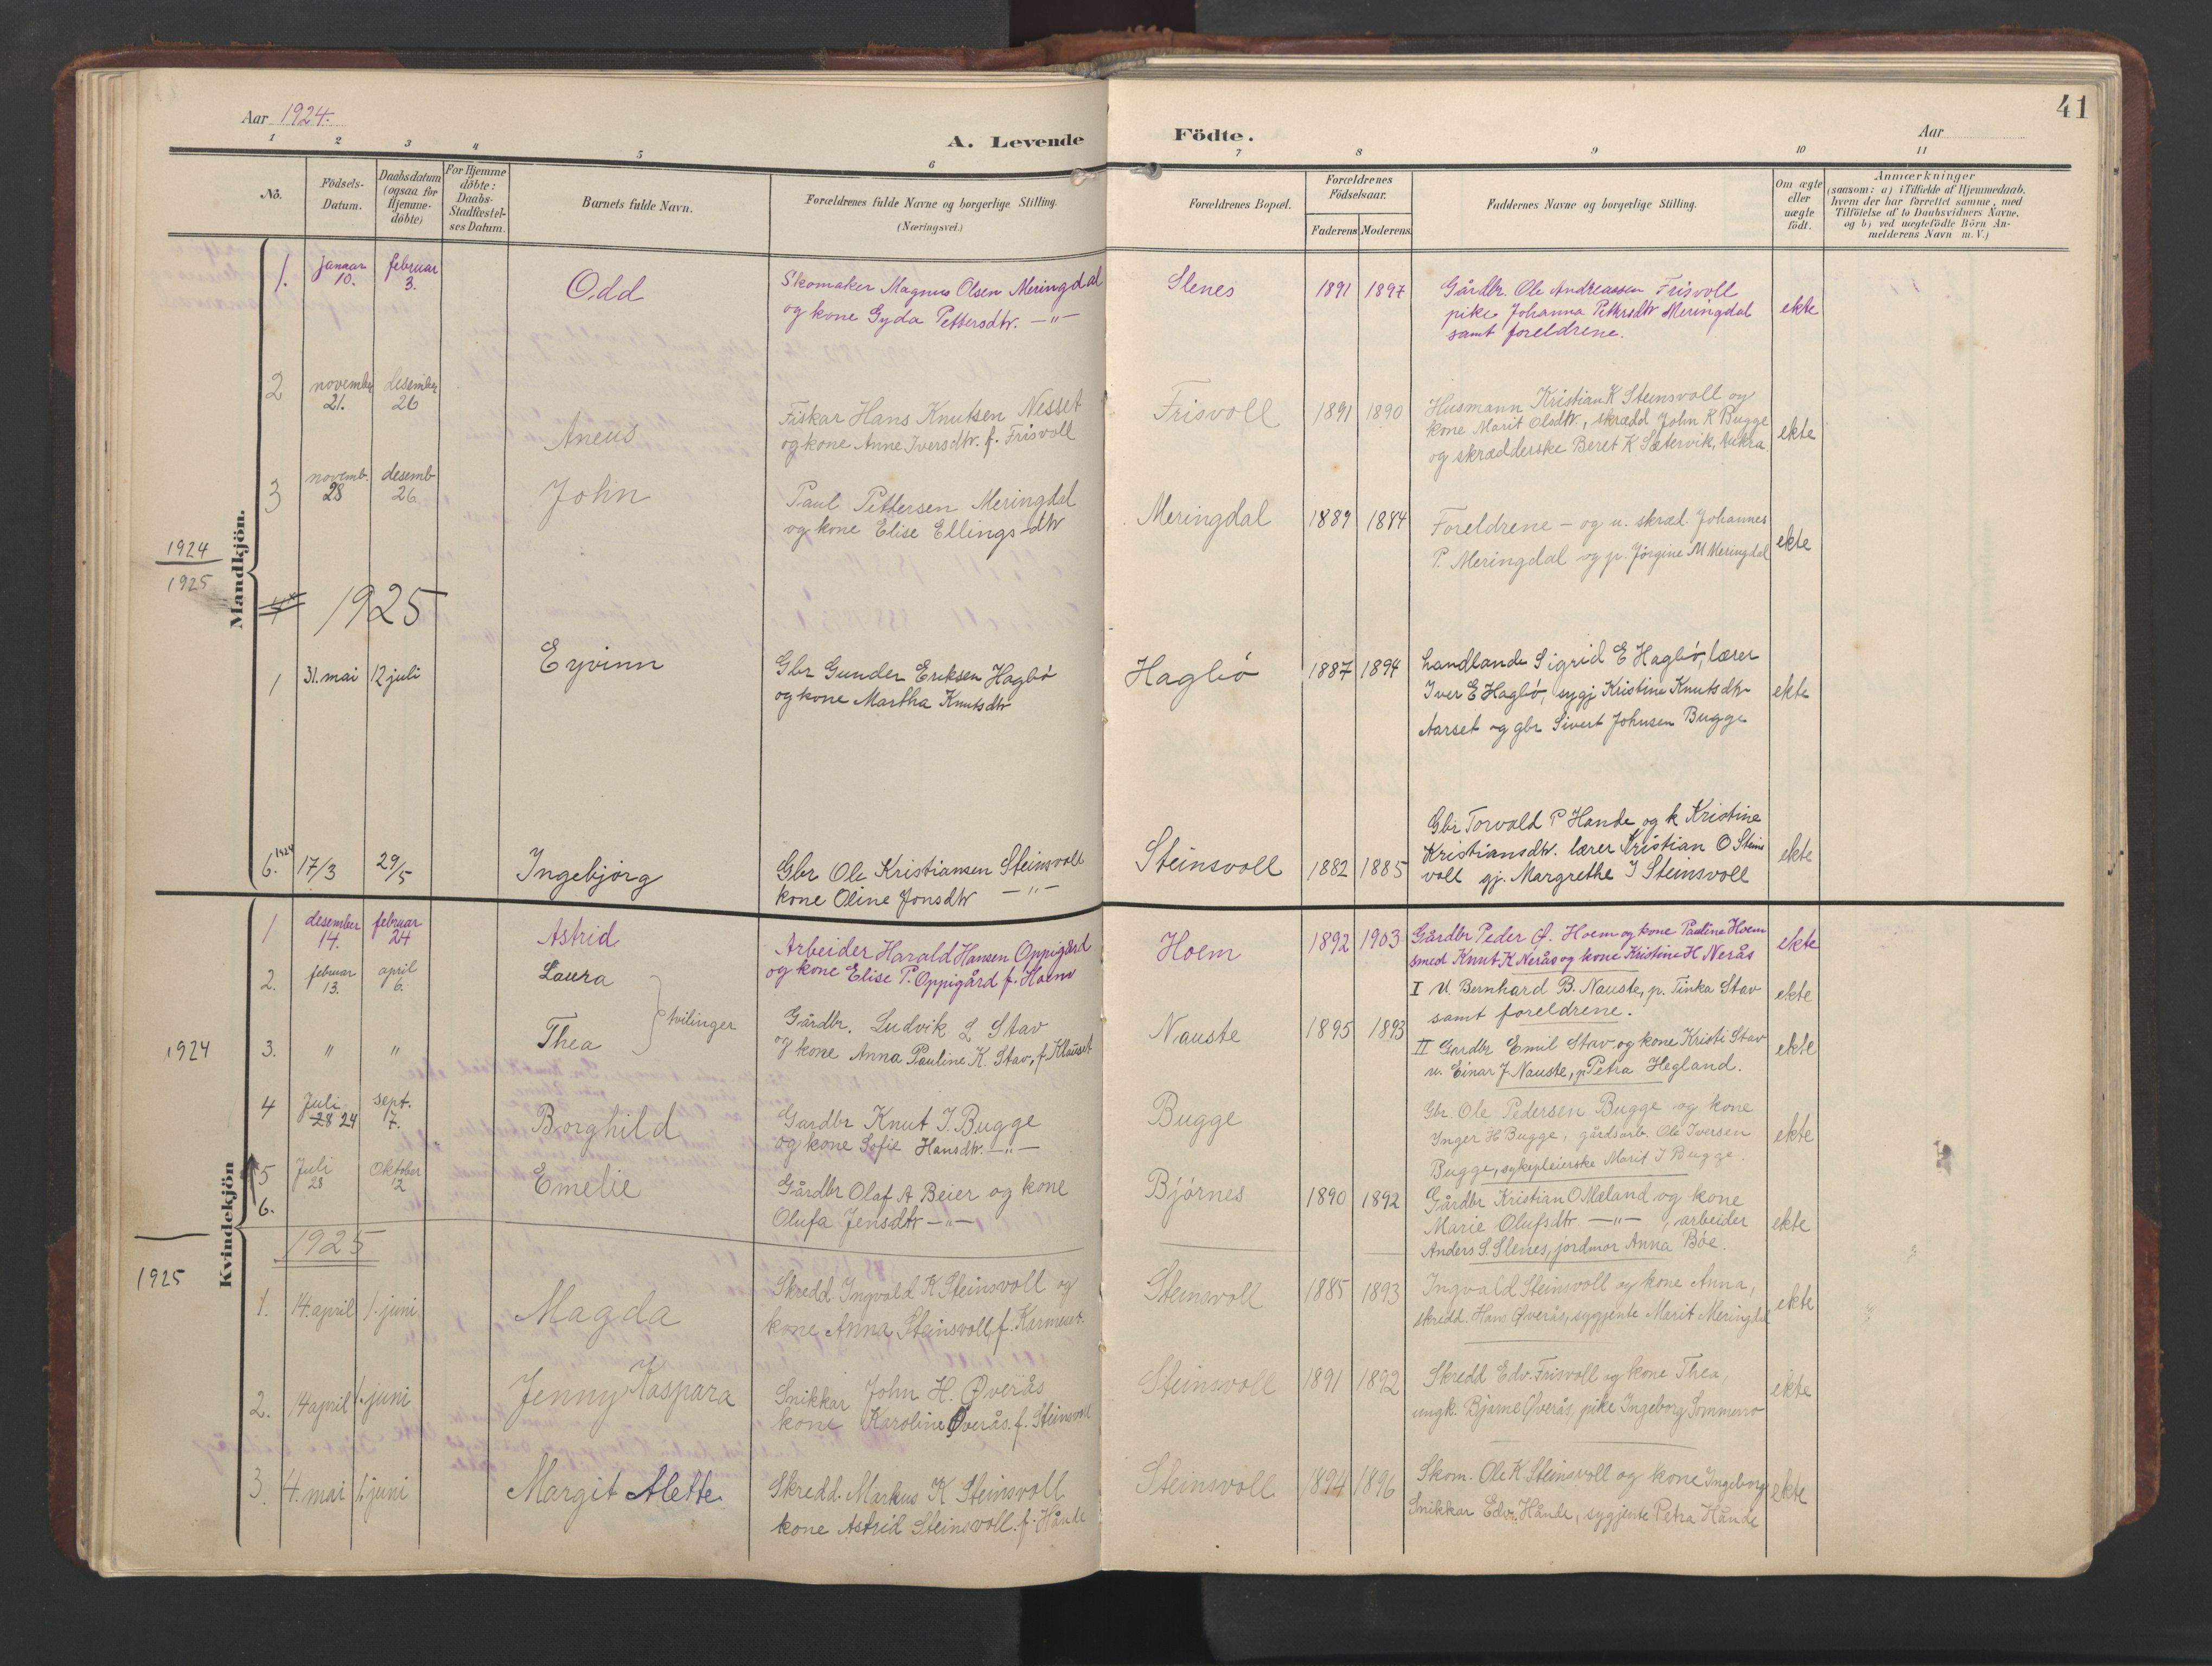 Aar 1924.
A. Levende Födte.
Aar
41
1 2 3 4 5 6 7 8 9 10 11
No.
Födsels-
Datum.
Daabsdatum
(ogsaa for
Hjemme-
döbte)
For Hjemme
döbte:
Daabs-
Stadfæstel-
ses Datum.
Barnets fulde Navn.
Forældrenes fulde Navne og borgerlige Stilling.
(Næringsvei.)
Forældrenes Bopæl.
Forældrenes
Födselsaar.
Faderens Moderens.
Faddernes Navne og borgerlige Stilling.
Om ægte
eller
uægte
födt.
Anmærkninger
(saasom: a) i Tilfælde af Hjemmedaab,
hvem der har forrettet samme, med
Tilföielse af to Daabsvidners Navne,
og b) ved uægtefödte Börn An-
melderens Navn m. V.)
Mandkjön.
1924
1925
1. januar 10. februar 3. Odd
Skomaker Magnus Olsen Meringdal
og kone Gyda Pettersdtr. —"—
Slenes 1891 1897
Gårdbr. Ole Andreassen Frisvoll
pike Johanna Pettersdtr Meringdal
samt foreldrene.
ekte
2 november 21. desember 26 Aneus
Fiskar Hans Knutsen Nesset
og kone Anne Iversdtr. f. Frisvoll
Frisvoll 1891 1890
Husmann Kristian K Steinsvoll og
kone Marit Olsdtr., skrædd John R Bugge
og skrædderske Beret K Sætervik, Aukra.
ekte
3 novemb. 28 desemb 26 John
Paul Pettersen Meringdal
og kone Elise Ellingsdtr
Meringdal 1889 1884
Foreldrene – og u. skræd. Johannes
P. Meringdal og p. Jørgine M Meringdal
ekte
1925
1 31. mai 12 juli Eyvinn
Gbr Gunder Eriksen Hagbö
og kone Martha Knutsdtr
Hagbö 1887 1894
handlande Sigrid E Hagbö, lærer
Iver E Hagbö, sygj Kristine Knutsdtr
Aarset og gbr Sivert Johnsen Bugge
ekte
6. 1924 17/3 29/5 Ingebjørg
Gbr Ole Kristiansen Steinsvoll
kone Oline Jonsdtr —"—
Steinsvoll 1882 1885
Gbr Torvald P Hande og k Kristine
Kristiansdtr. lærer Kristian O Steins
voll gj. Margrethe I Steinsvoll
ekte
Kvindekjön
1924
1 desember 14. februar 24 Astrid
Arbeider Harald Hansen Oppigård
og kone Elise P. Oppigård f. Hoem
Hoem 1892 1903
Gårdbr Peder Ø. Hoem og kone Pauline Hoem
smed Knut K Nerås og kone Kristine H Nerås
ekte
2. februar 13. april 6. Laura
3. " " Thea
tvilinger
Gårdbr. Ludvik L Stav
og kone Anna Pauline K. Stav, f Klauset
Nauste 1895 1893
I U. Bernhard B. Nauste, p. Tinka Stav
samt foreldrene.
ekte
II Gardbr Emil Stav og kone Kristi Stav
u. Einar J Nauste, p Petra Hegland.
ekte
4 Juli 28 24 sept. 7. Borghild
Gardbr Knut I. Bugge
og kone Sofie Hansdtr. —"—
Bugge
Gbr. Ole Pedersen Bugge og kone
Inger H Bugge, gårdsarb. Ole Iversen
Bugge, sykepleierske Marit I Bugge.
ekte
5 Juli 28 Oktober 12 Emelie
6.
Gårdbr Olaf A Beier og kone
Olufa Jensdtr —"—
Bjørnes 1890 1892
Gårdbr Kristian O Mæland og kone
Marie Olufsdtr —"—, arbeider
Anders S. Slenes, jordmor Anna Böe.
ekte
1925
1925
1. 14. april 1. juni Magda
Skredd Ingvald K Steinsvoll og
kone Anna Steinsvoll f. Karmeset.
Steinsvoll 1885 1893
Ingvald Steinsvoll og kone Anna,
skredd. Hans Øverås, sygjente Marit Meringdal
ekte
2. 14 april 1. juni Jenny Kaspara
Snikkar John H. Øverås
kone Karoline Øverås. f. Steinsvoll
Steinsvoll 1891 1892
Skredd Edv. Frisvoll og kone Thea,
ungk. Bjarne Øverås, pike Ingeborg Sommerro
ekte
3. 4. mai 1. juni Margit Alette
Skredd. Markus K Steinsvoll
kone Astrid Steinsvoll. f. Hånde
Steinsvoll 1894 1896
Skom. Ole K Steinsvoll og kone Ingeborg
Snikkar Edv. Hånde, sygjente Petra Hånde
ekte